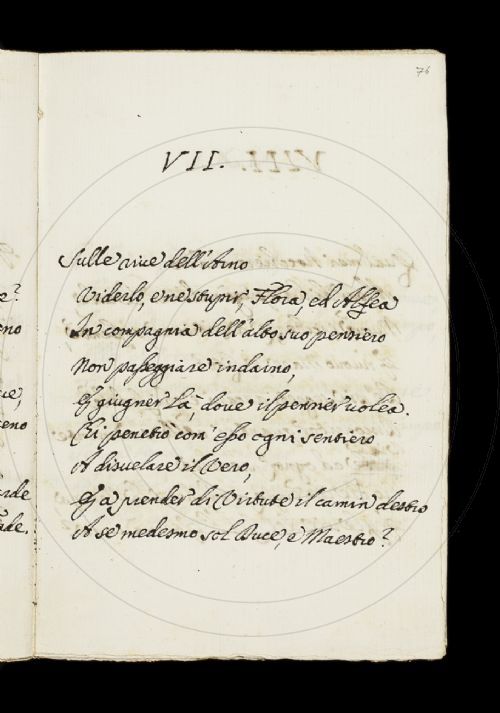 76
VII.
Sulle rive dell'Arno
Viderlo, e ne stupir, Flora, ed Alfea
In compagnia dell'alto suo pensiero
Non passeggiare indarno,
E giugner là, dove il pensier volea.
Ei penetrò com' esso ogni sentiero
A disvelare il Vero,
E a prender di Virtute il camin destro
A se medesmo sol Duce, e Maestro?